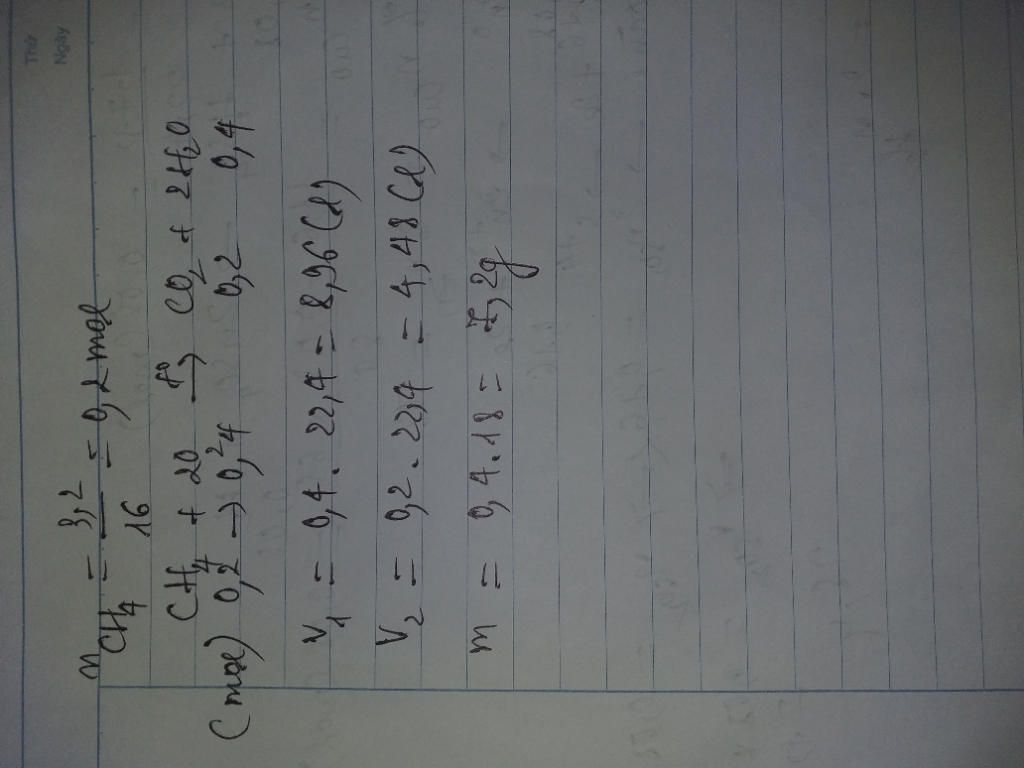 Thứ
Ngày
n CH₄ = 3,2 / 16 = 0,2 mol
CH₄ + 2O₂ t⁰→ CO₂ + 2H₂O
(mol) 0,2 → 0,4 0,2 0,4
V₁ = 0,4 . 22,4 = 8,96 (l)
V₂ = 0,2 . 22,4 = 4,48 (l)
m = 0,4 . 18 = 7,2g